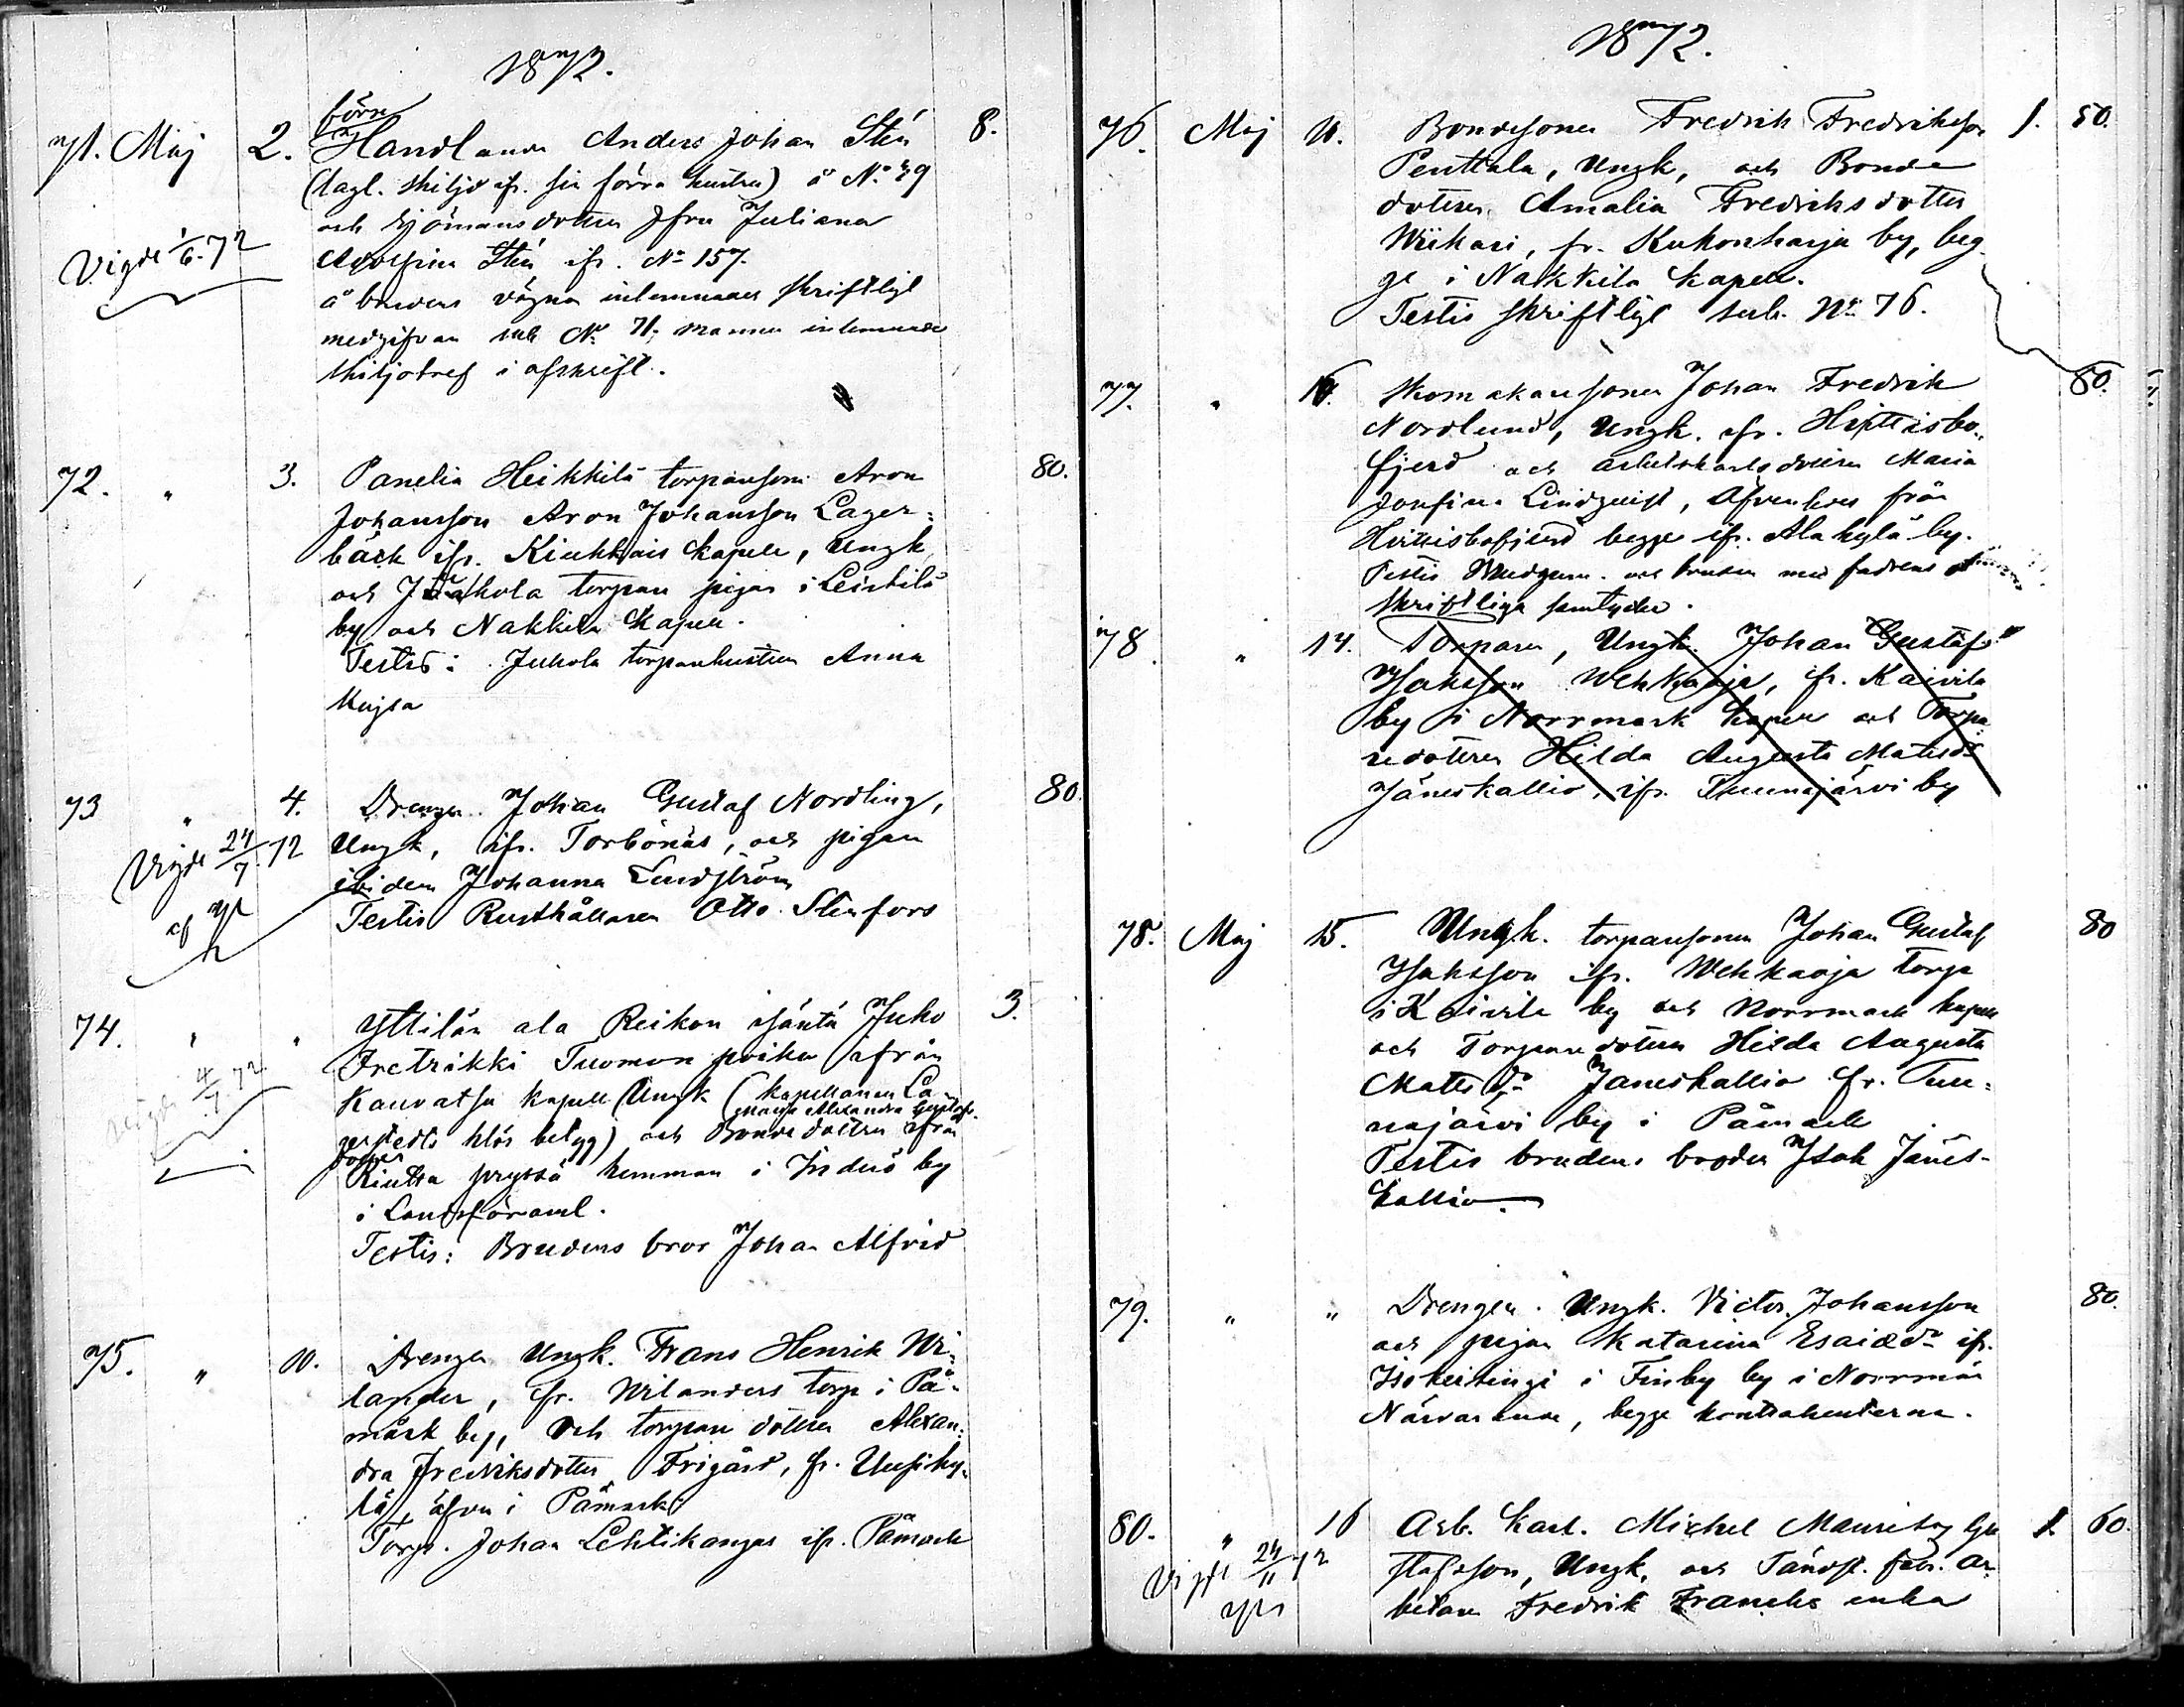 1872.
förre
71. Maj 2. Handlanden Anders Johan Stén 8.
(lagl. skiljd ifr. sin förra hustru) å No 49
och sjömansdottren Jfru Juliana
Vigde 1/6.72 Adolfina Stén ifr. No 157.
å brudens vägna inlemnades skriftligt
medgifvan sub No 71. mannen inlemnade
skiljobref i afskrift.
72. " 3. Panelia Heikkilä torparesonen Aron 80.
Johansson Aron Johansson Lager=
bäck ifr. Kiukais kapell, Ungk,
och Juhola torpare pigan i Leistilä
by och Nakkila kapell.
Testis: Juhola torparhustrun Anna
Majsa
73 " 4. Drengen Johan Gustaf Nordling, 80.
Vigde 24/7.72 Ungk, ifr. Torbonäs, och pigan
ibidem Johanna Lindström
Testis Rusthållaren Otto Stenfors
74. " " Yttilän ala Reikon isäntä Juho 3.
Fretrikki Tuomon poika ifrån
Vigde 4/7.72 Kauvatsa kapell Ungk (kapellanen La
Maija Alexandra Gustafs
gerstedts hlös betyg) och Bonde dottren ifrån
dotter
Kiukka pryssä hemman i Inderö by
i Landsföraml.
Testis: Brudens bror Johan Alfrid
75. " 10. Drengen Ungk. Frans Henrik Wi=
lander, fr. Wilanders torp i På=
mark by, och torpare dottren Alexan=
dra Fredriksdotter Frigård, fr. Uusiky=
lä, äfven i Påmark
Torp. Johan Lehtikangas ifr. Påmark
1872.
76. Maj 11. Bondesonen Fredrik Fredriksson 1. 50.
Penttala, Ungk, och Bonde
dottren Amalia Fredriksdotter
Wiikari, fr. Kukonharja by, beg
ge i Nakkila kapell.
Testis skriftligt sub. No 76.
77. " Skomakaresonen Johan Fredrik 80.
Nordlund, Ungk. ifr. Hvittisbo=
fjerd och arbetskarls dottren Maria
Josefina Lindqvist, äfvenledes från
Hvittisbofjerd begge ifr. Ala kylä by.
Testis Brudgum. och bruden med fadrens
skriftliga samtycke.
78 " 14. Torparen, Ungk. Johan Gustaf
Isaksson Wehkaoja, fr. Kaivila
by i Norrmark kapell och Torpa
redottren Hilda Augusta Matsdr
Jäneskallio, ifr. Tuunajärvi by
78. Maj 15. Ungk. torparesonen Johan Gustaf 80
Isaksson ifr. Wehkaoja torp
i Kaivila by och Norrmark kapell
och Torpare dottren Hilda Augusta
Matts dr Janeskallio fr. Tuu=
najärvi by i Påmark
Testis brudens broder Isak Jänes-
kallio.
79. " " Drengen Ungk. Victor Johansson 80.
och pigan Katarina Esaiædr ifr.
Isokeisingi i Finby by i Norrmark
Närvarande, begge kontrahenterne.
80. " 16 Arb. Karl. Michel Mauritz Gu 1. 60.
Vigde 24/11 72 stafsson, Ungk, och Tändst. fabr. ar
betare Fredrik Francks enka